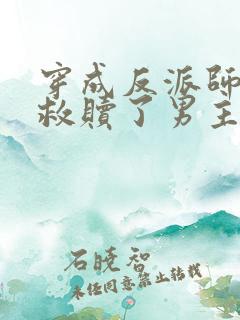 穿成反派師
救贖了男主
石曉智
未经同意禁止转载